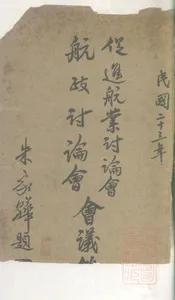 民國二十三年
促進航業討論會
航政討論會
會議
朱家驊題